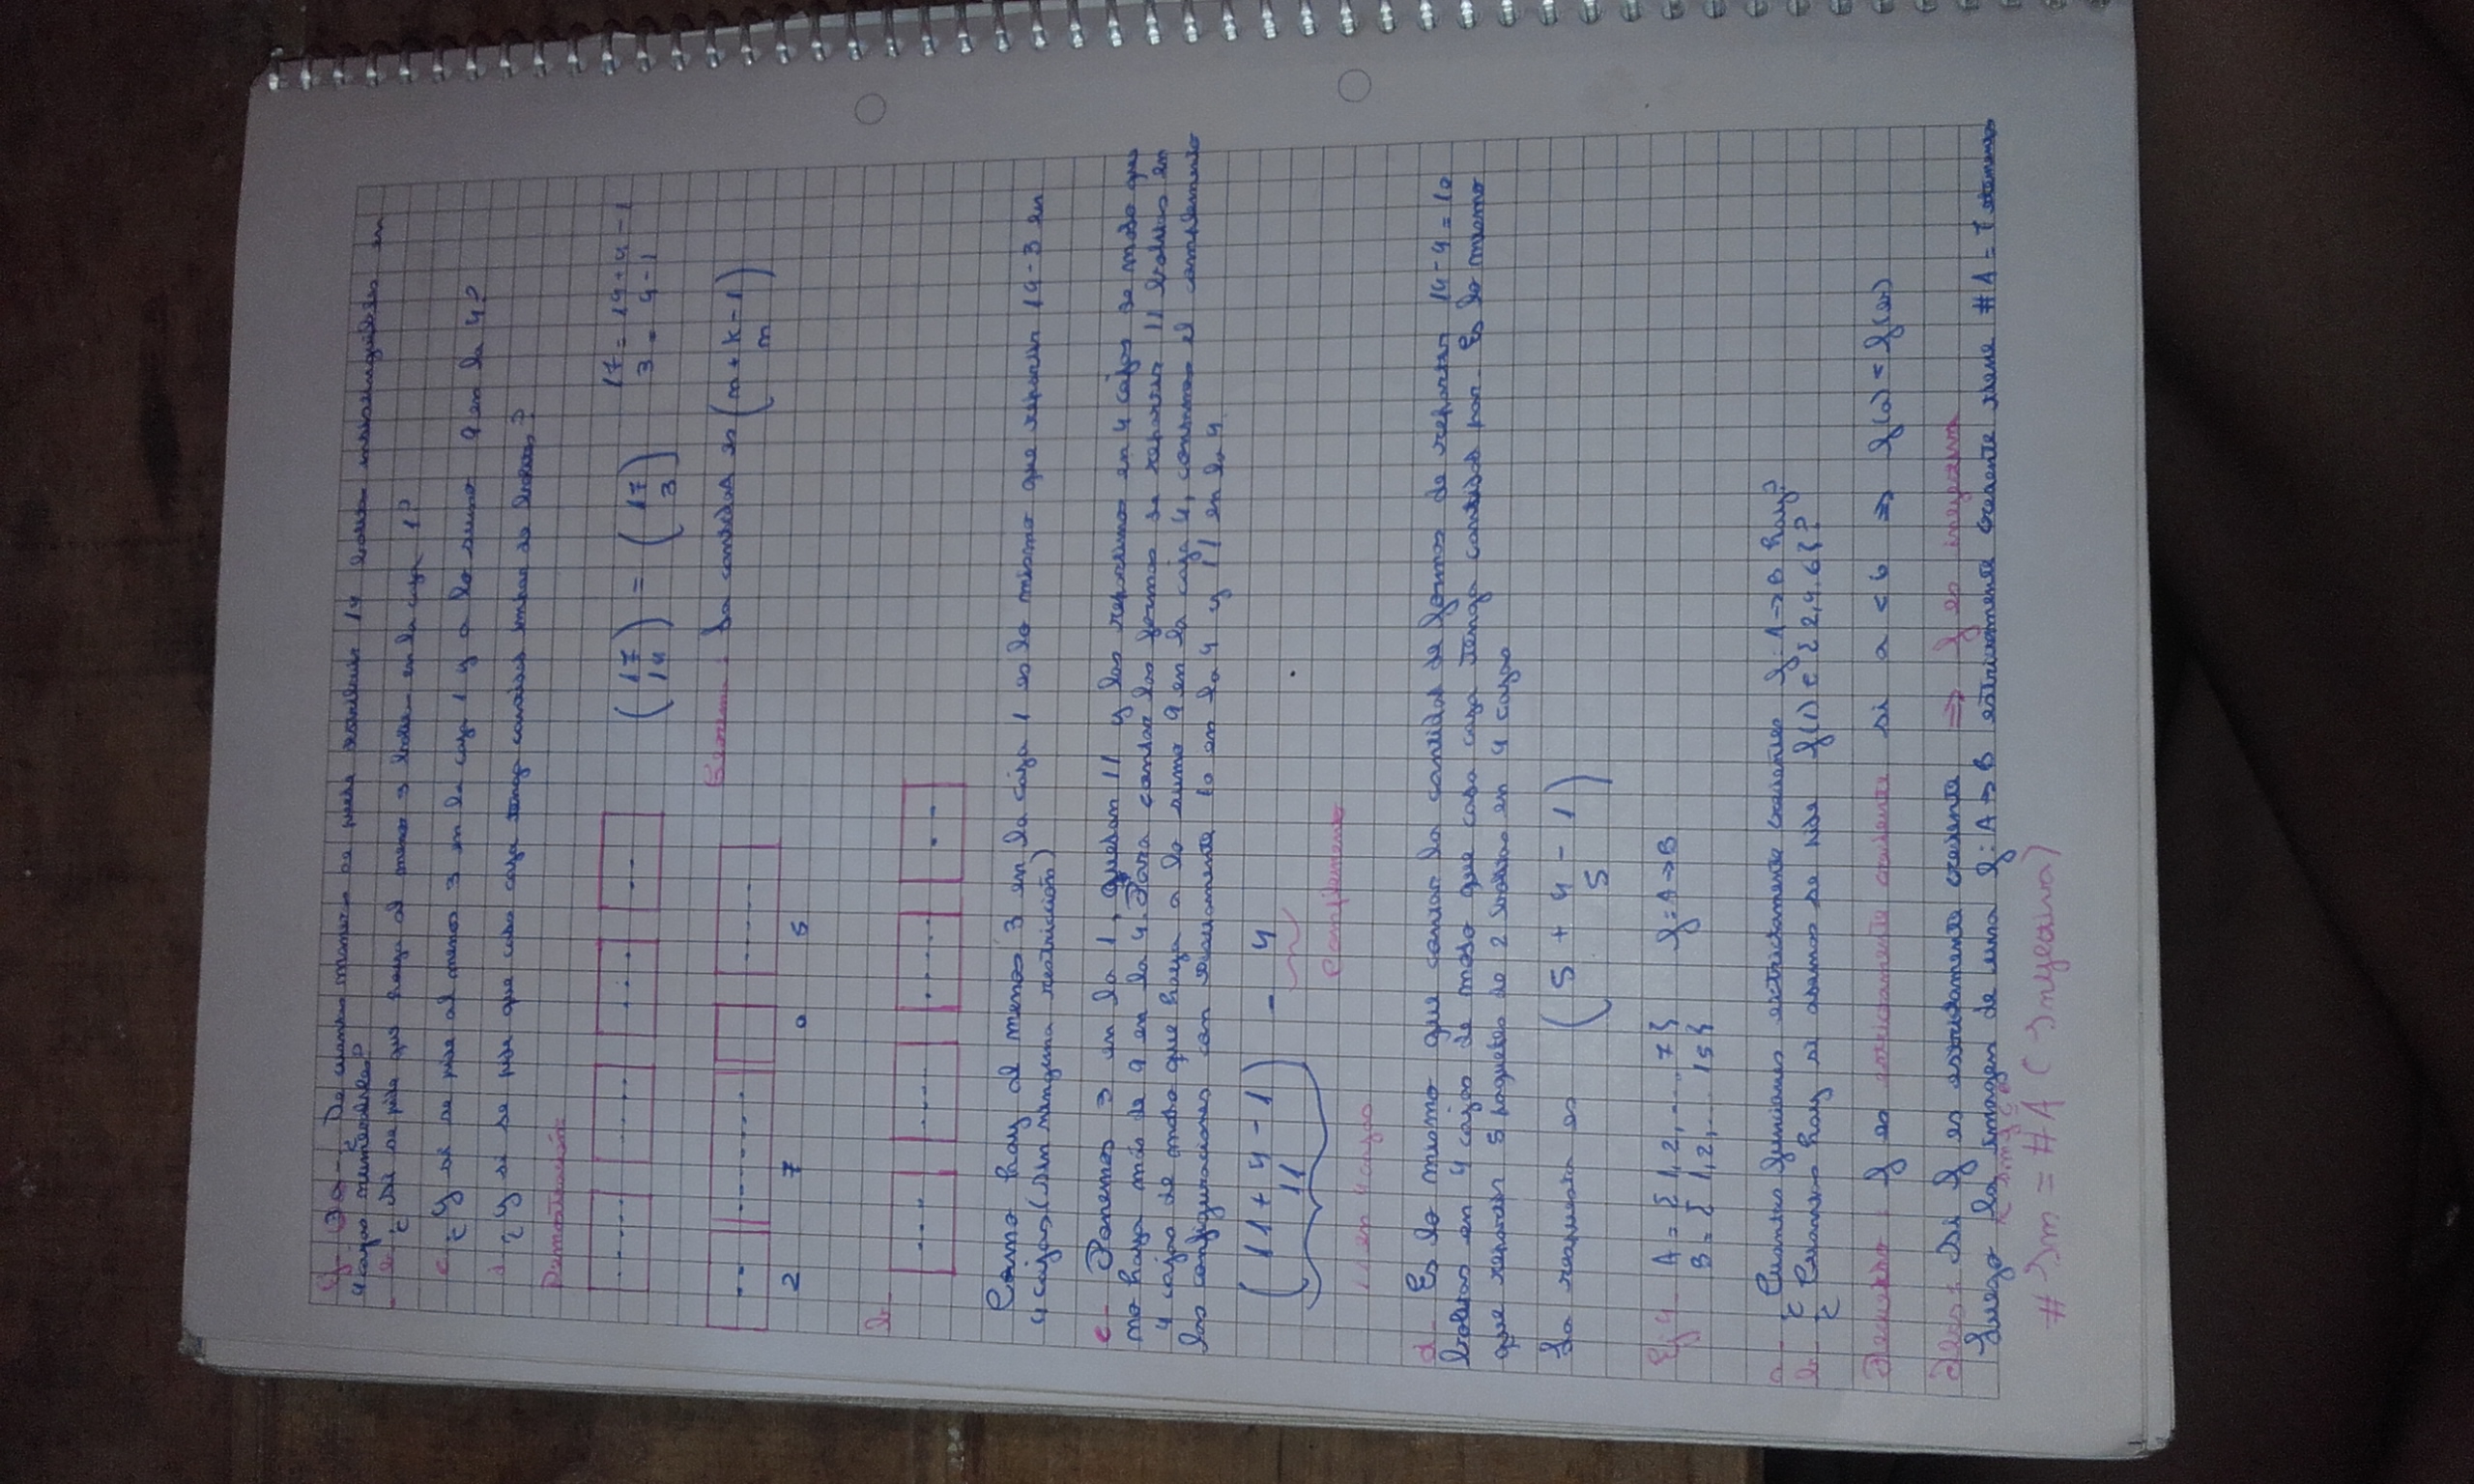 Ej 3 a- ¿De cuantas maneras se puede distribuir 14 bolitas indistinguibles en
4 cajas numeradas?
b- ¿Si se pide que haya al menos 3 bolitas en la caja 1?
c- ¿Y si se pide al menos 3 en la caja 1 y a lo sumo 9 en la 4?
d- ¿Y si se pide que cada caja tenga cantidad impar de bolitas?
Demostración:
(17 14) = (17 3)
17 = 14 + 4 - 1
3 = 4 - 1
Teorema: La cantidad es (n + k - 1 n)
2 7 0 5
b-
Como hay al menos 3 en la caja 1 es lo mismo que repartir 14 - 3 en
4 cajas (sin ninguna restricción)
c- Ponemos 3 en la 1, quedan 11 y las repartimos en 4 cajas de modo que
no haya más de 9 en la 4. Para contar las formas de repartir 11 bolitas en
4 cajas de modo que haya a lo sumo 9 en la caja 4, contamos el complemento
las configuraciones con exactamente 10 en la 4 y 11 en la 4.
(11 + 4 - 1 11) - 4
Complemento
11 en 4 cajas
d- Es lo mismo que contar la cantidad de formas de repartir 14 - 4 = 10
bolitas en 4 cajas de modo que cada caja tenga cantidad par. Es lo mismo
que repartir 5 paquetes de 2 bolitas en 4 cajas
La respuesta es (5 + 4 - 1 5)
Ej 4- A = {1, 2, ... 7} f: A → B
B = {1, 2, ... 15}
a- ¿Cuantas funciones estrictamente crecientes f: A → B hay?
b- ¿Cuantas hay si además se pide f(1) ∈ {2, 4, 6}?
Recuerdo: f es estrictamente creciente si a < b ⇒ f(a) < f(b)
Si f es estrictamente creciente ⇒ f es inyectiva
Luego la imagen de una f: A → B estrictamente creciente tiene #A = 7 elementos
# Im = #A (Inyectiva)